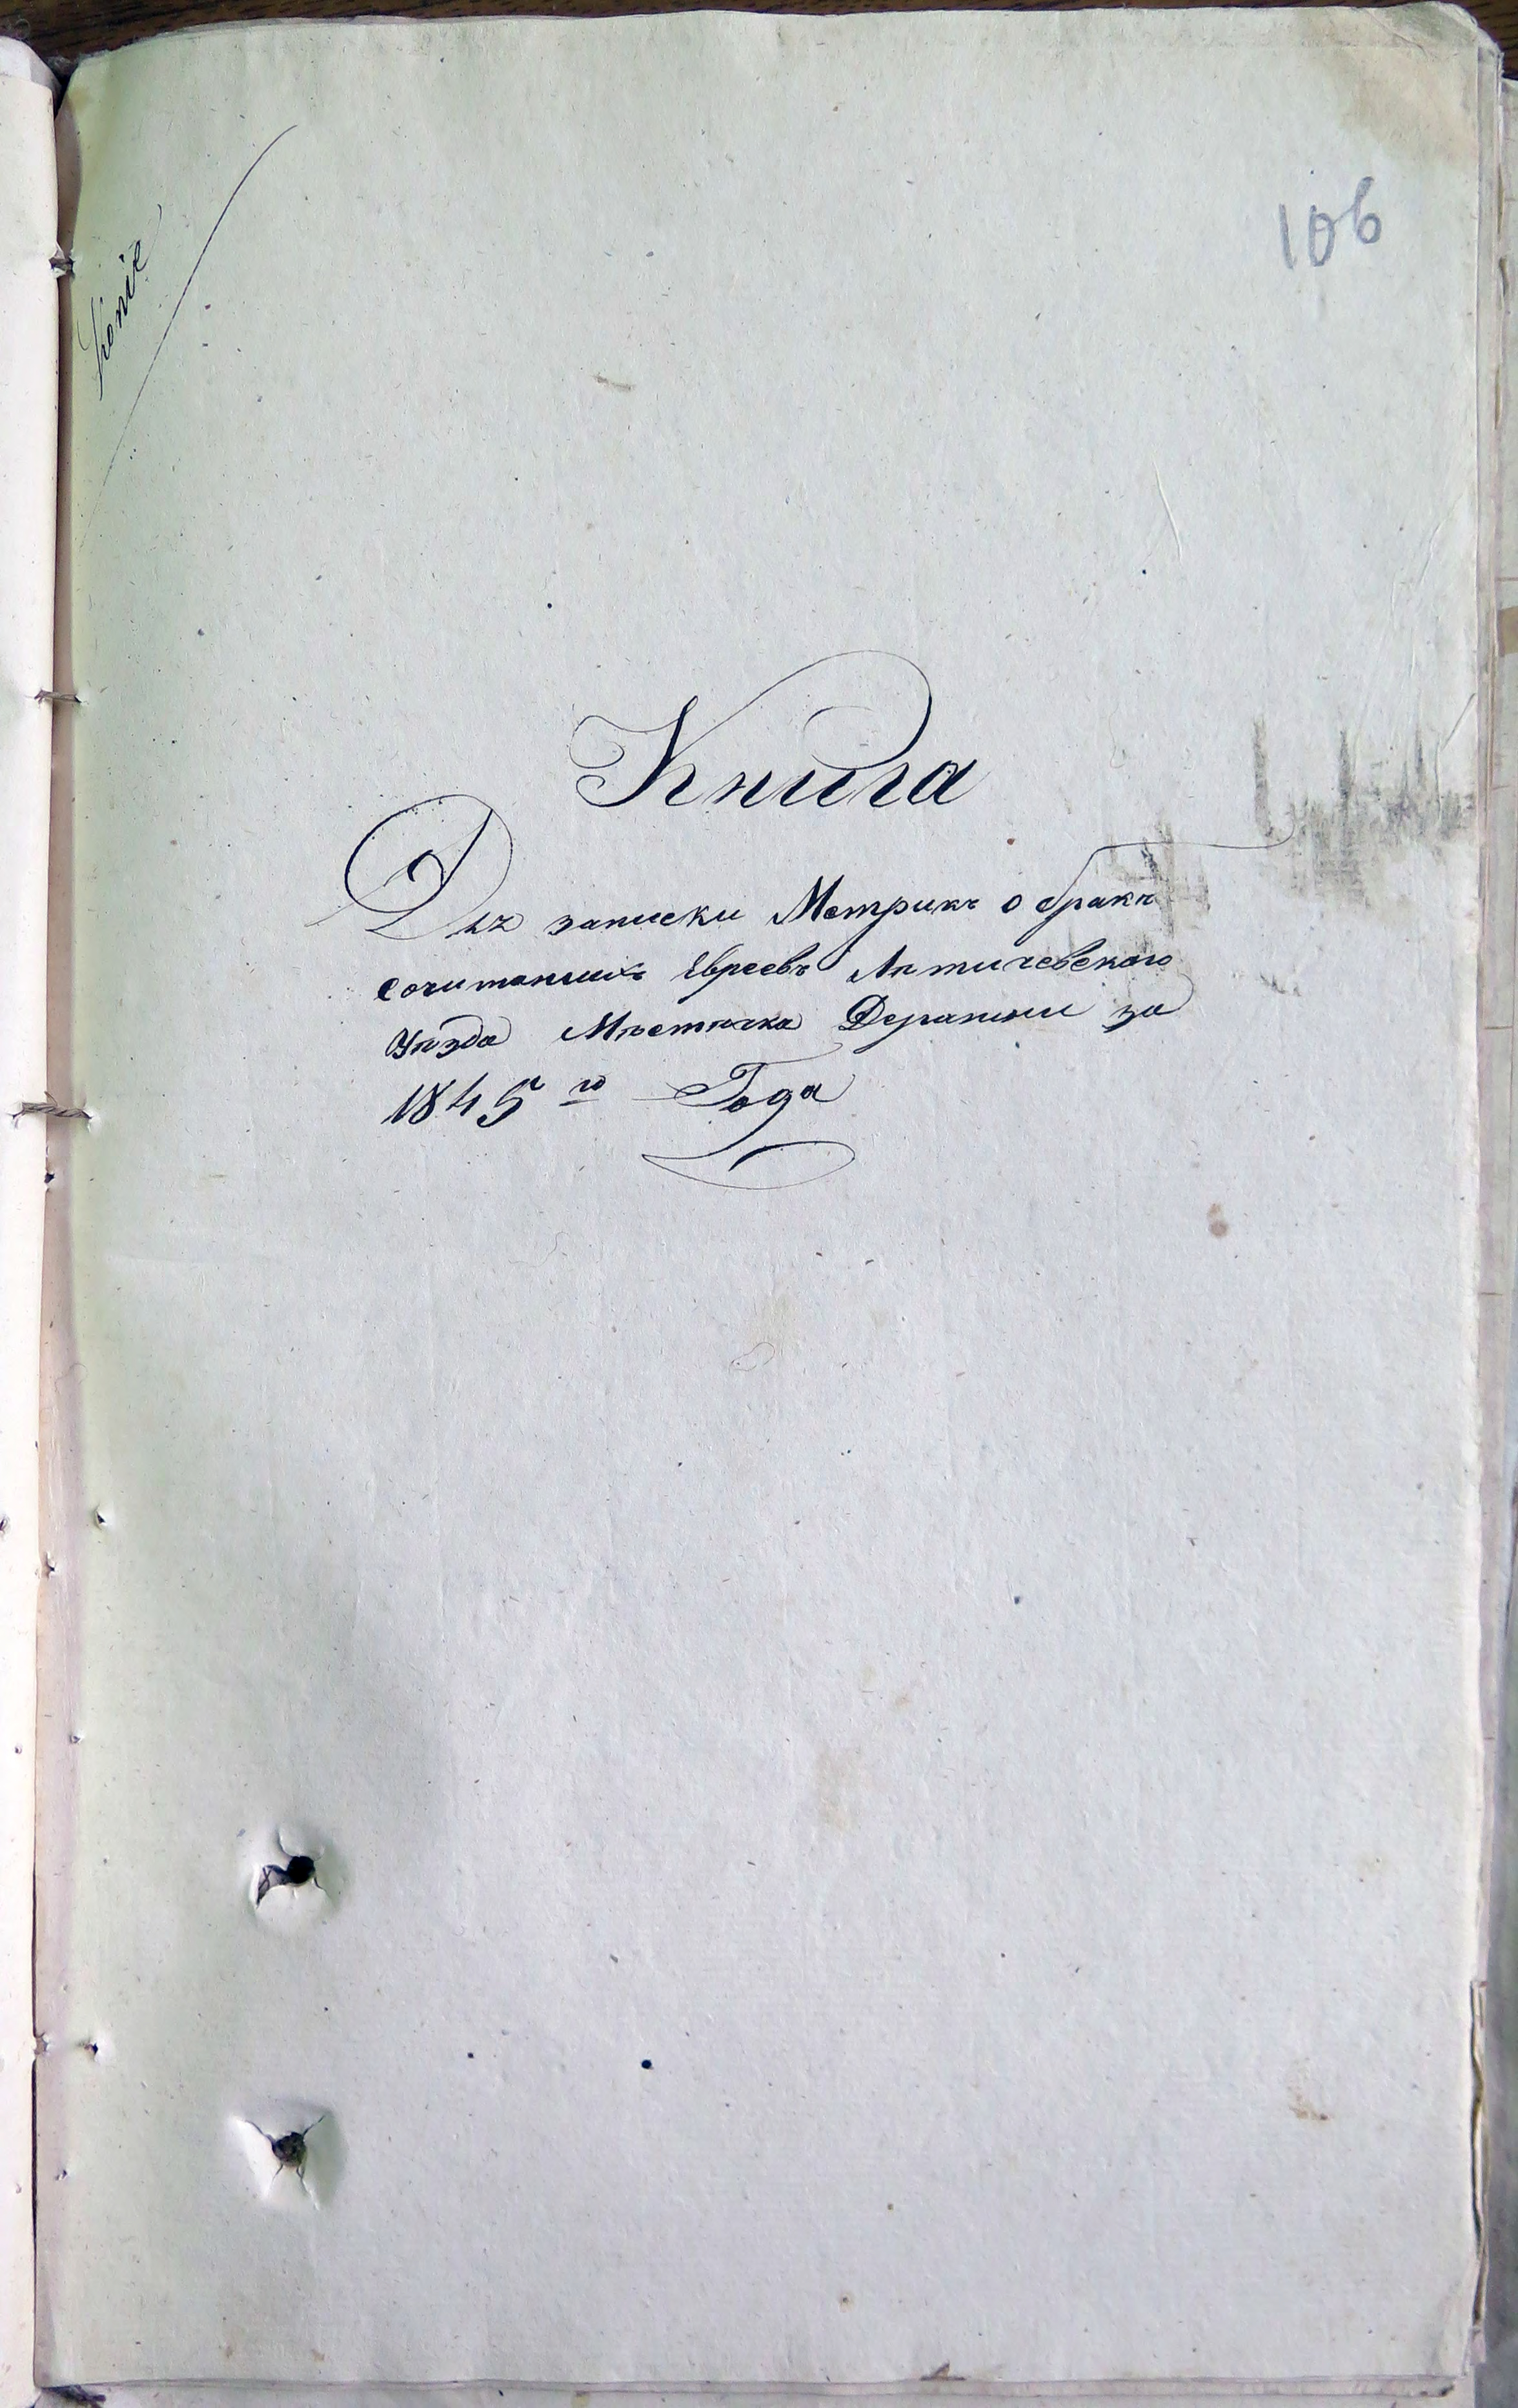 106
Копіе
Книга
Для записки Метрикъ о бракѣ
сочитавшихъ Евреевъ Литичевскаго
Уѣзда Мѣстечка Деражни за
1845 го Года